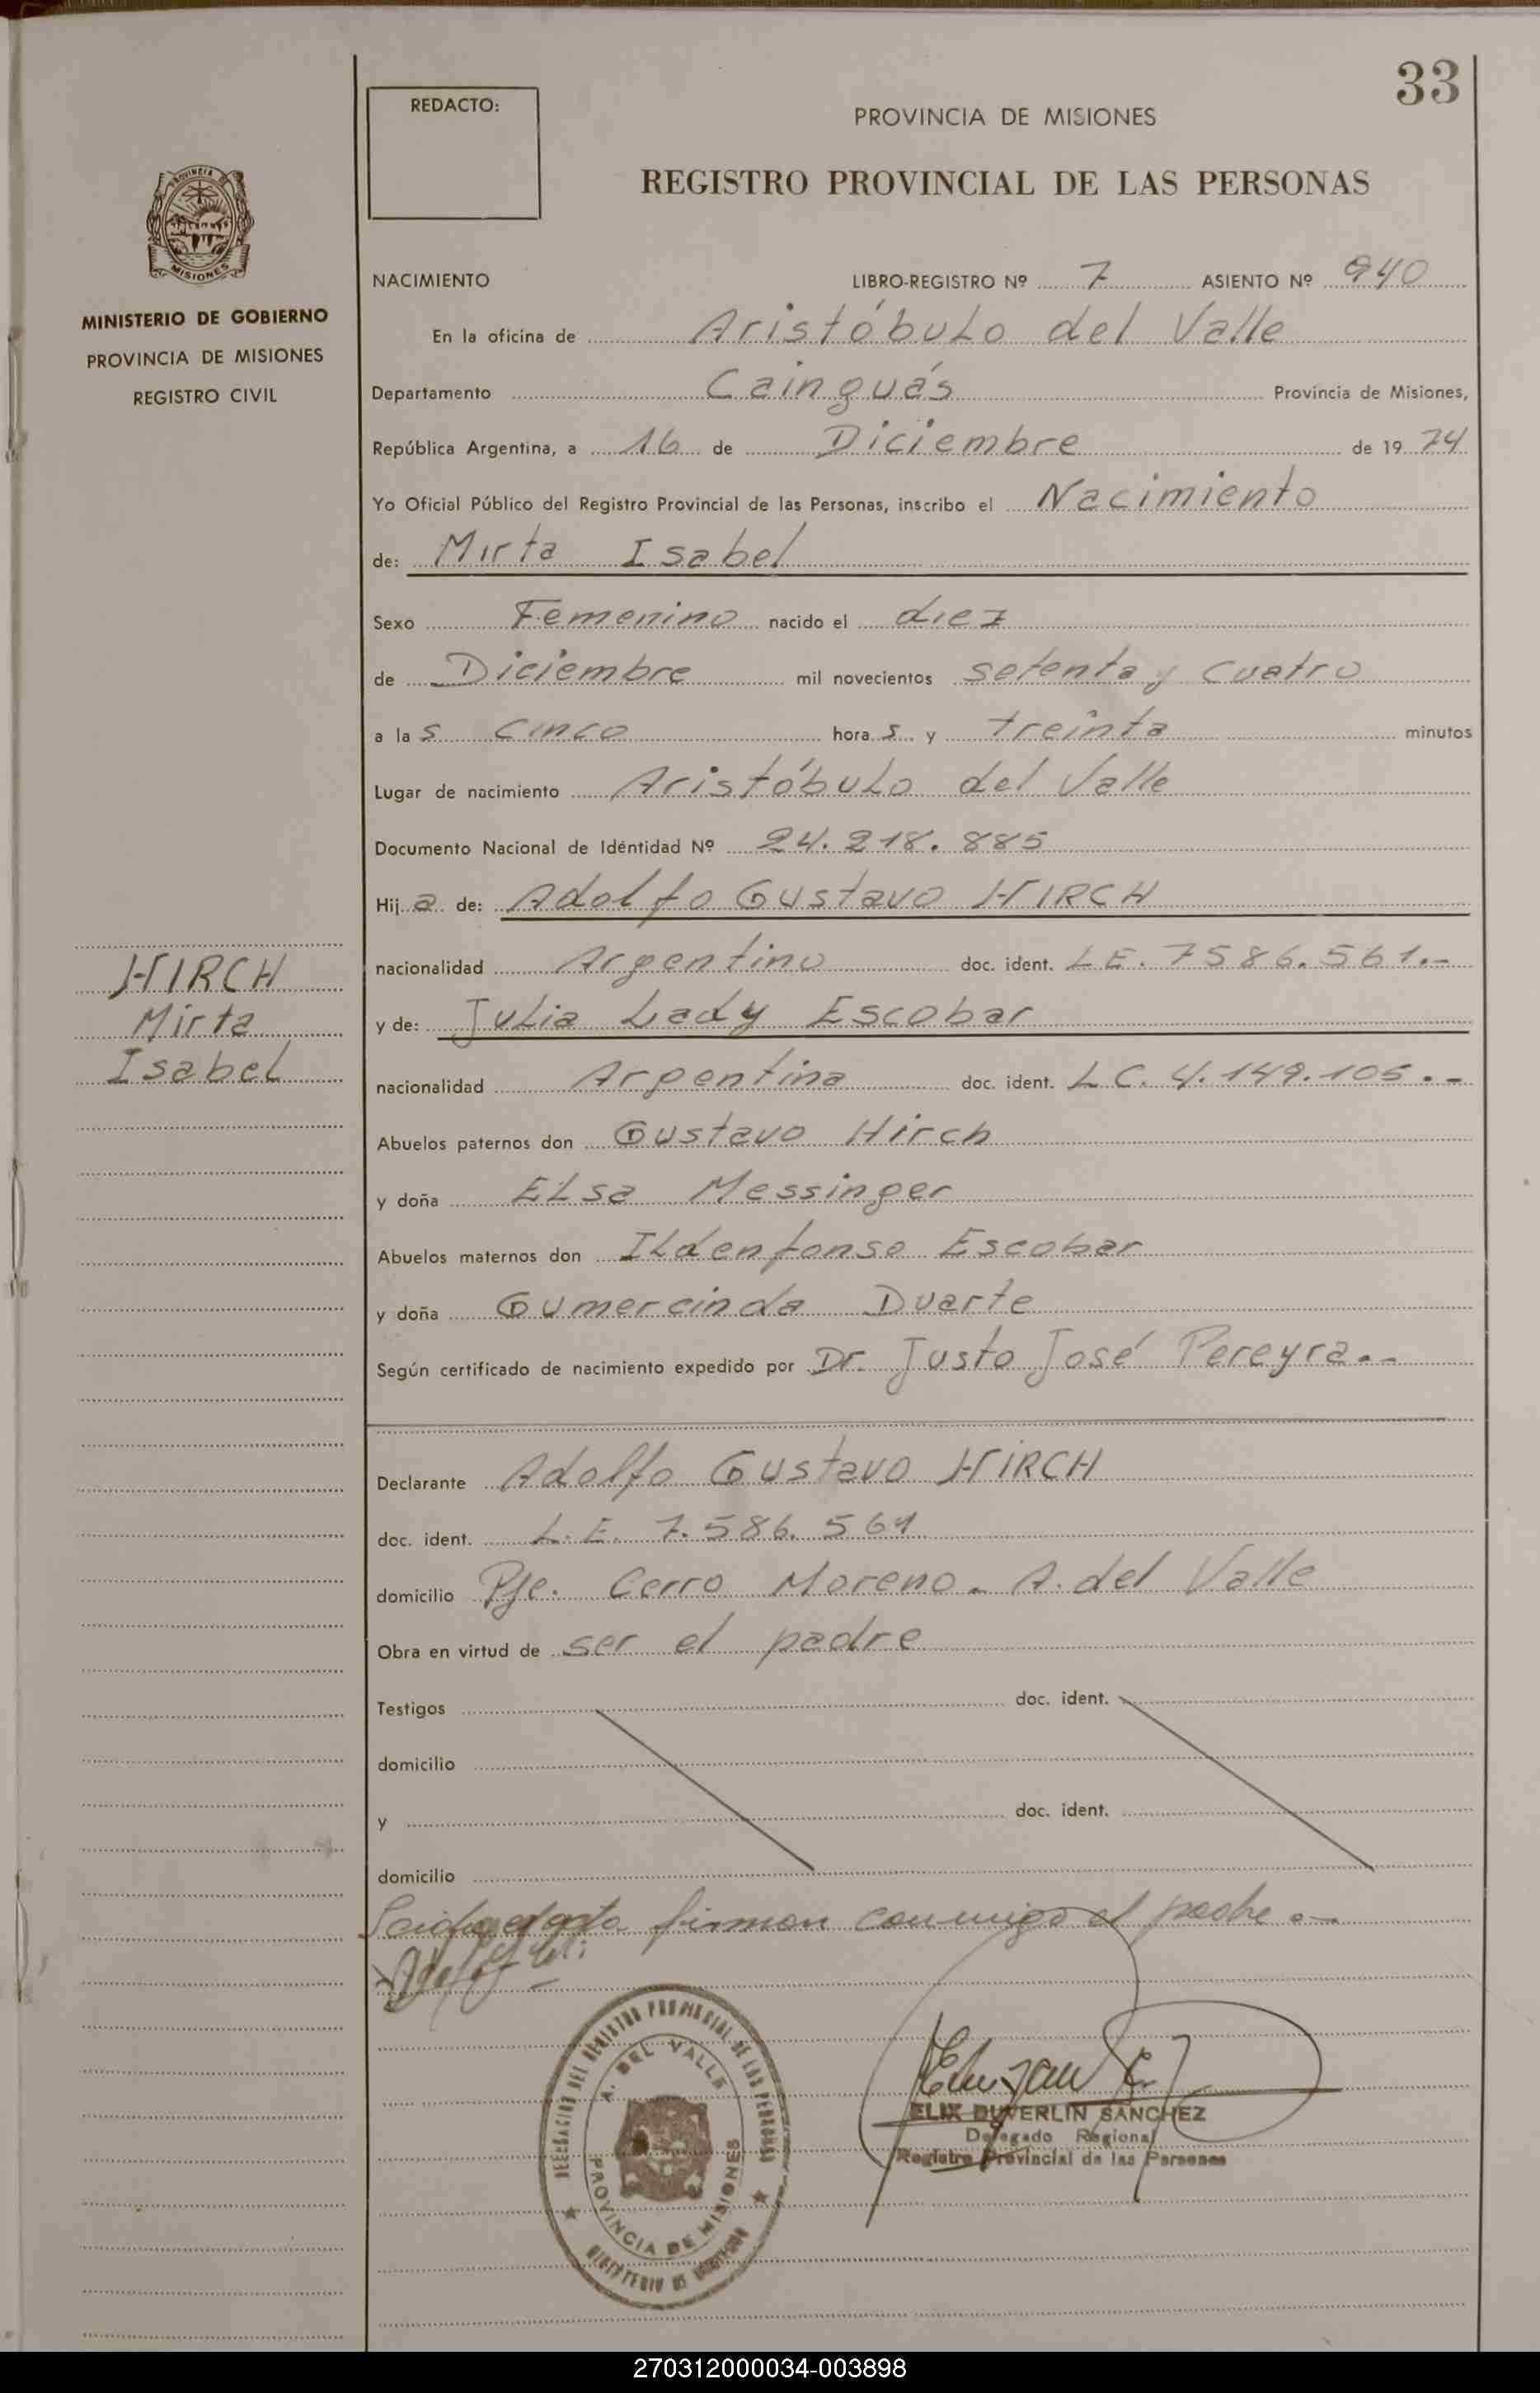 33
REDACTO:
PROVINCIA DE MISIONES
REGISTRO PROVINCIAL DE LAS PERSONAS
MISIONES
MINISTERIO DE GOBIERNO
PROVINCIA DE MISIONES
REGISTRO CIVIL
NACIMIENTO LIBRO-REGISTRO Nº 7 ASIENTO Nº 940
En la oficina de Aristóbulo del Valle
Departamento Cainguás Provincia de Misiones,
República Argentina, a 16 de Diciembre de 19 74
Yo Oficial Público del Registro Provincial de las Personas, inscribo el Nacimiento
de: Mirta Isabel
Sexo Femenino nacido el diez
de Diciembre mil novecientos setenta y cuatro
a las cinco horas y treinta minutos
Lugar de nacimiento Aristóbulo del Valle
Documento Nacional de Idéntidad Nº 24.218.885
Hija de: Adolfo Gustavo HIRCH
nacionalidad Argentino doc. ident. L.E. 7586.561.-
y de: Julia Lady Escobar
nacionalidad Argentina doc. ident. L.C. 4.149.105.-
HIRCH
Mirta
Isabel
Abuelos paternos don Gustavo Hirch
y doña Elsa Messinger
Abuelos maternos don Ildenfonso Escobar
y doña Gumercinda Duarte
Según certificado de nacimiento expedido por Dr. Justo José Pereyra.-
Declarante Adolfo Gustavo HIRCH
doc. ident. L.E. 7.586.561
domicilio Pje. Cerro Moreno - A. del Valle
Obra en virtud de ser el padre
Testigos doc. ident.
domicilio
y doc. ident.
domicilio
Leida el acta firman conmigo el padre.-
DELEGACION DEL REGISTRO PROVINCIAL DE LAS PERSONAS
A. DEL VALLE
PROVINCIA DE MISIONES
MINISTERIO DE GOBIERNO
ELIX DUVERLIN SANCHEZ
Delegado Regional
Registro Provincial de las Personas
270312000034-003898